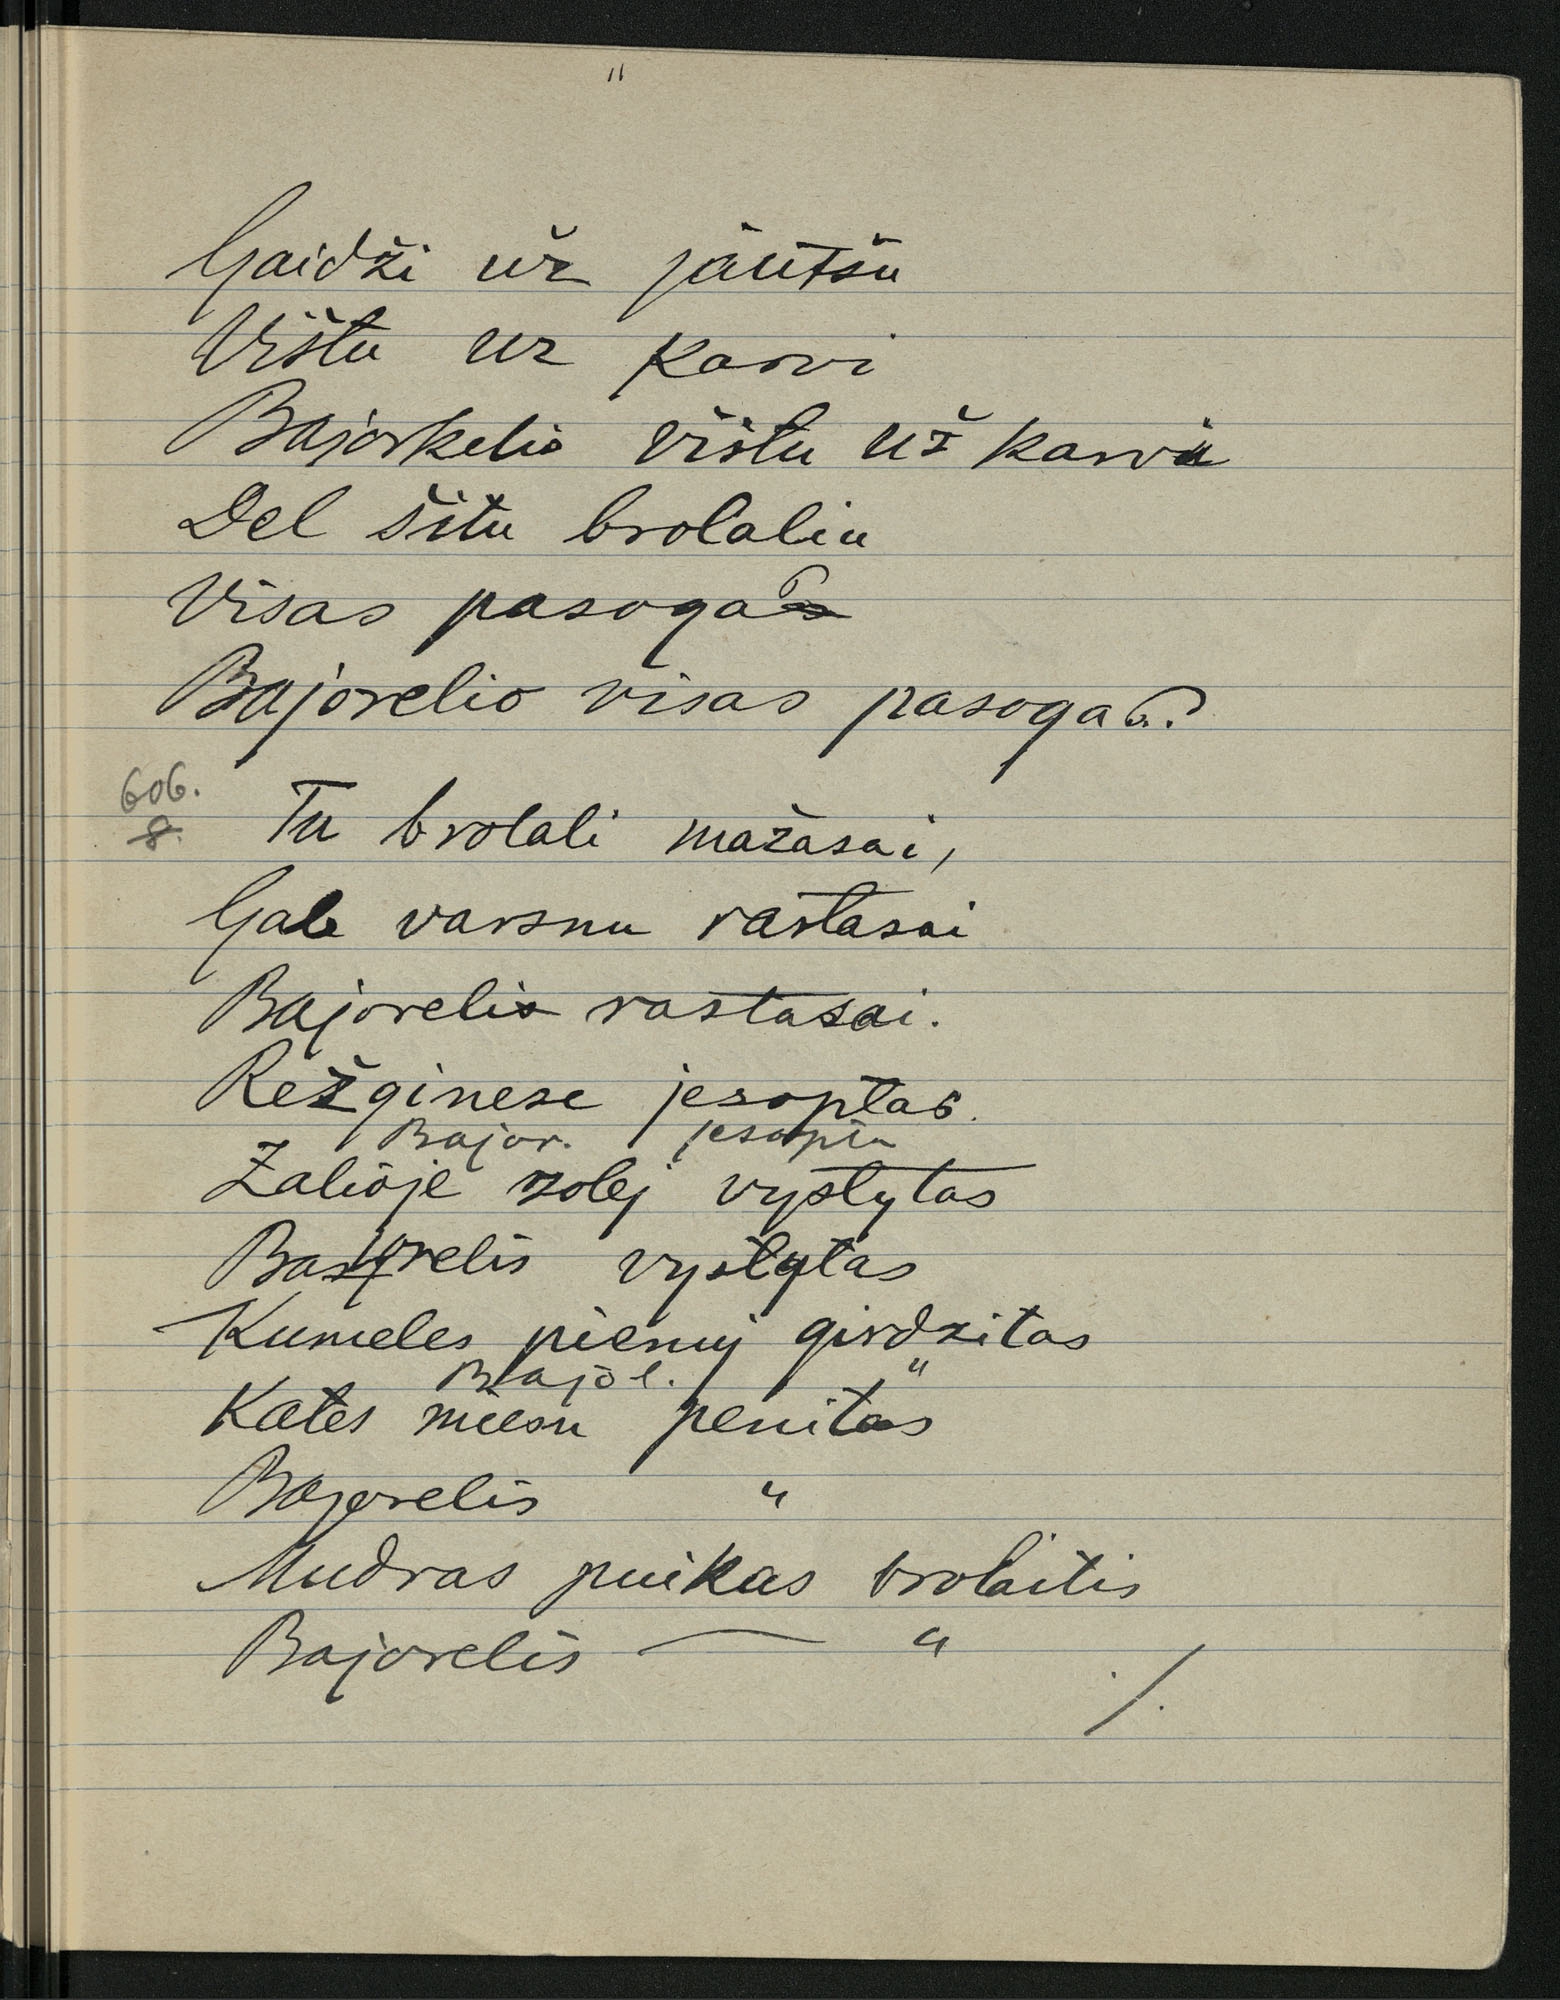 "
Gaidži už jautšu
Vištu uz karvi
Bajorkelio vištu už karvu
Del šitu brolaliu
Visas pasogas
Bajorelio visas pasogas.
606.
8.
Tu brolali mažasai,
Gale varsnu rastasai
Bajorelis rastasai.
Režginese jesoptas.
Bajor. jesoptu
Žalioje zolej vystytas
Bajorelis vystytas
Kumeles pienuj girdzitas
Bajol. "
Kates miesu penitas
Bajorelis "
Mudras puikas brolaitis
Bajorelis — "
./.